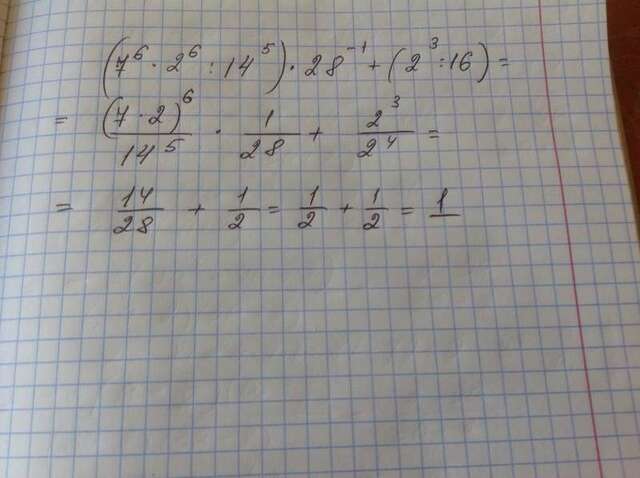 (7⁶ · 2⁶ : 14⁵) · 28⁻¹ + (2³ : 16) =
= (7 · 2)⁶/14⁵ · 1/28 + 2³/2⁴ =
= 14/28 + 1/2 = 1/2 + 1/2 = 1